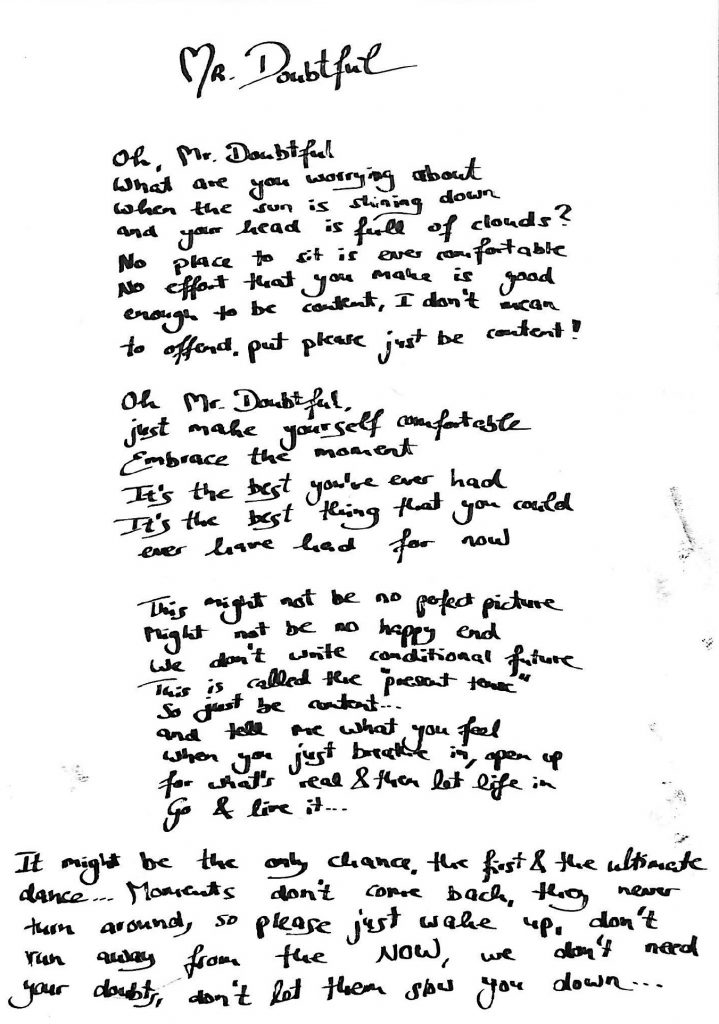 Mr. Doubtful
Oh, Mr. Doubtful
What are you worrying about
when the sun is shining down
and your head is full of clouds?
No place to sit is ever comfortable
No effort that you make is good
enough to be content, I don't mean
to offend, put please just be content!
Oh Mr. Doubtful,
just make yourself comfortable
Embrace the moment
It's the best you've ever had
It's the best thing that you could
ever have had for now
This might not be no pofect picture
Might not be no happy end
We don't write conditional future
This is called the "present tense"
So just be content...
and tell me what you feel
when you just breathe in, open up
for what's real & then let life in
Go & live it...
It might be the only chance, the first & the ultimate
dance... Moments don't come back, they never
turn around, so please just wake up, don't
run away from the NOW, we don't need
your doubts, don't let them slow you down...